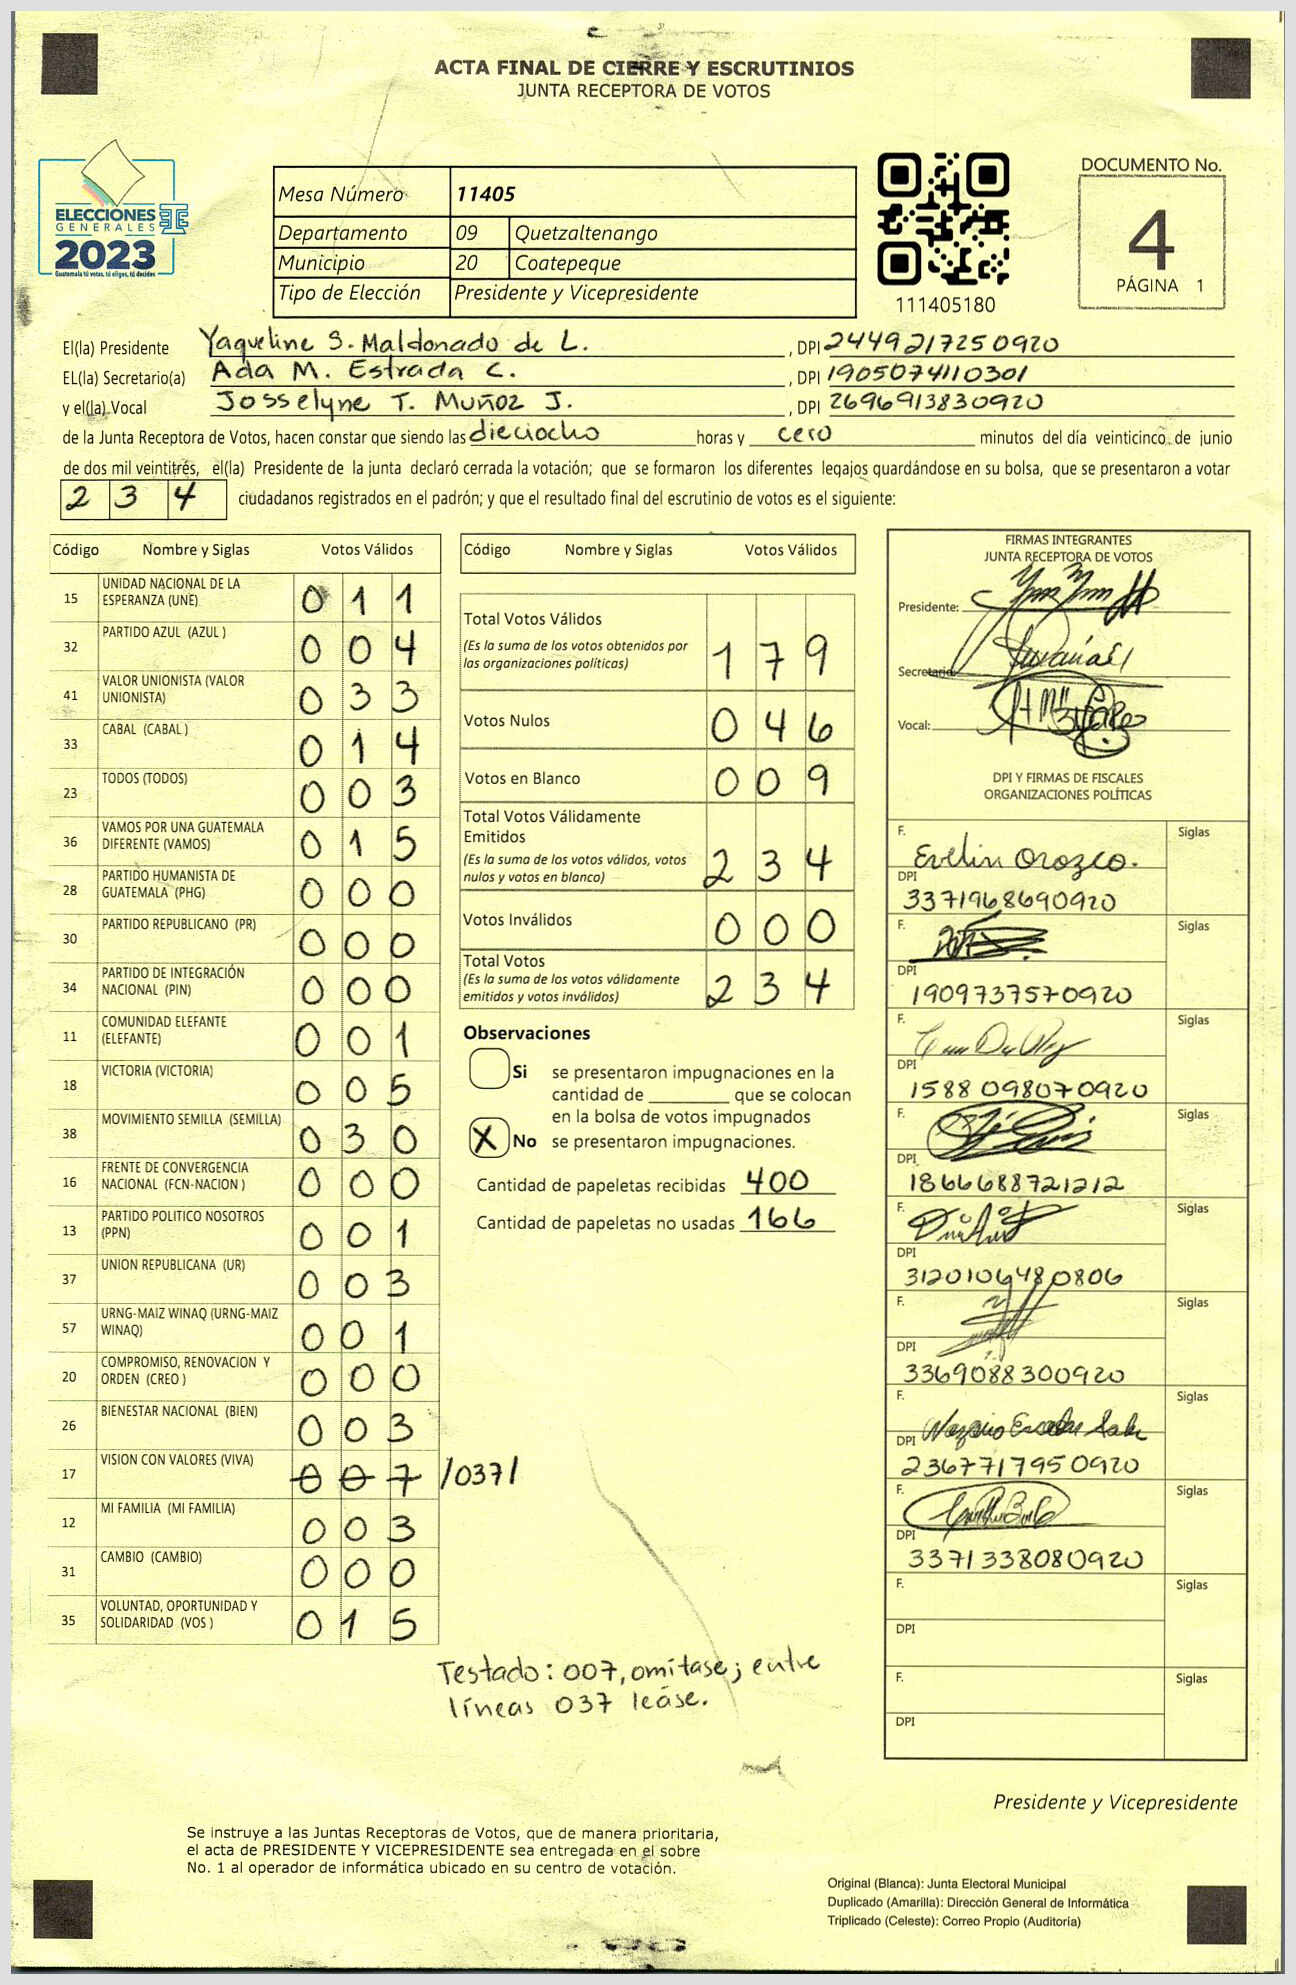 ACTA FINAL DE CIERRE Y ESCRUTINIOS
JUNTA RECEPTORA DE VOTOS
ELECCIONES
GENERALES
2023
Guatemala tú votas, tú eliges, tú decides
Mesa Número 11405
Departamento 09 Quetzaltenango
Municipio 20 Coatepeque
Tipo de Elección Presidente y Vicepresidente
111405180
DOCUMENTO No.
4
PÁGINA 1
El(la) Presidente Yaqueline S. Maldonado de L. , DPI 2449217250920
EL(la) Secretario(a) Ada M. Estrada C. , DPI 1905074110301
y el(la) Vocal Josselyne T. Muñoz J. , DPI 2696913830920
de la Junta Receptora de Votos, hacen constar que siendo las dieciocho horas y cero minutos del día veinticinco de junio
de dos mil veintitrés, el(la) Presidente de la junta declaró cerrada la votación; que se formaron los diferentes legajos quardándose en su bolsa, que se presentaron a votar
2 3 4 ciudadanos registrados en el padrón; y que el resultado final del escrutinio de votos es el siguiente:
Código Nombre y Siglas Votos Válidos
15 UNIDAD NACIONAL DE LA ESPERANZA (UNE) 0 1 1
32 PARTIDO AZUL (AZUL ) 0 0 4
41 VALOR UNIONISTA (VALOR UNIONISTA) 0 3 3
33 CABAL (CABAL ) 0 1 4
23 TODOS (TODOS) 0 0 3
36 VAMOS POR UNA GUATEMALA DIFERENTE (VAMOS) 0 1 5
28 PARTIDO HUMANISTA DE GUATEMALA (PHG) 0 0 0
30 PARTIDO REPUBLICANO (PR) 0 0 0
34 PARTIDO DE INTEGRACIÓN NACIONAL (PIN) 0 0 0
11 COMUNIDAD ELEFANTE (ELEFANTE) 0 0 1
18 VICTORIA (VICTORIA) 0 0 5
38 MOVIMIENTO SEMILLA (SEMILLA) 0 3 0
16 FRENTE DE CONVERGENCIA NACIONAL (FCN-NACION ) 0 0 0
13 PARTIDO POLITICO NOSOTROS (PPN) 0 0 1
37 UNION REPUBLICANA (UR) 0 0 3
57 URNG-MAIZ WINAQ (URNG-MAIZ WINAQ) 0 0 1
20 COMPROMISO, RENOVACION Y ORDEN (CREO ) 0 0 0
26 BIENESTAR NACIONAL (BIEN) 0 0 3
17 VISION CON VALORES (VIVA) 0 0 7 /037/
12 MI FAMILIA (MI FAMILIA) 0 0 3
31 CAMBIO (CAMBIO) 0 0 0
35 VOLUNTAD, OPORTUNIDAD Y SOLIDARIDAD (VOS ) 0 1 5
Código Nombre y Siglas Votos Válidos
Total Votos Válidos
(Es la suma de los votos obtenidos por
las organizaciones políticas) 1 7 9
Votos Nulos 0 4 6
Votos en Blanco 0 0 9
Total Votos Válidamente
Emitidos
(Es la suma de los votos válidos, votos
nulos y votos en blanco) 2 3 4
Votos Inválidos 0 0 0
Total Votos
(Es la suma de los votos válidamente
emitidos y votos inválidos) 2 3 4
Observaciones
Si se presentaron impugnaciones en la
cantidad de ________ que se colocan
en la bolsa de votos impugnados
X No se presentaron impugnaciones.
Cantidad de papeletas recibidas 400
Cantidad de papeletas no usadas 166
Testado: 007, omitase; entre
líneas 037 leáse.
FIRMAS INTEGRANTES
JUNTA RECEPTORA DE VOTOS
Presidente:
Secretario:
Vocal:
DPI Y FIRMAS DE FISCALES
ORGANIZACIONES POLÍTICAS
F. Evelin Orozco. Siglas
DPI 3371968690920
F. Siglas
DPI 1909737570920
F. Siglas
DPI 1588098070920
F. Siglas
DPI 1866688721212
F. Siglas
DPI 3120106480806
F. Siglas
DPI 3369088300920
F. Siglas
DPI 2367717950920
F. Siglas
DPI 3371338080920
F. Siglas
DPI
F. Siglas
DPI
Presidente y Vicepresidente
Se instruye a las Juntas Receptoras de Votos, que de manera prioritaria,
el acta de PRESIDENTE Y VICEPRESIDENTE sea entregada en el sobre
No. 1 al operador de informática ubicado en su centro de votación.
Original (Blanca): Junta Electoral Municipal
Duplicado (Amarilla): Dirección General de Informática
Triplicado (Celeste): Correo Propio (Auditoría)